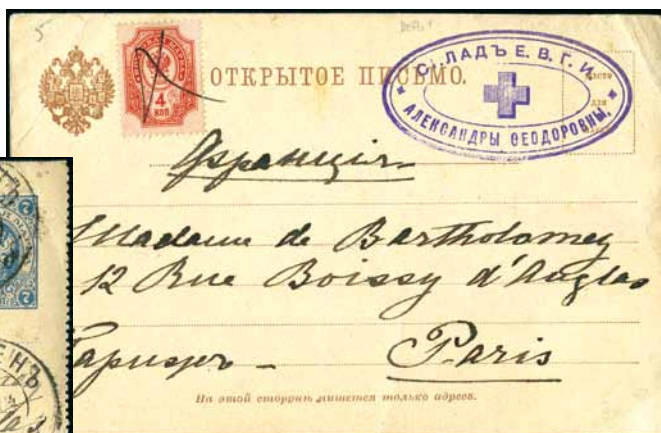 5
ОТКРЫТОЕ ПИСЬМО.
4
КОП
СКЛАДЪ Е. В. Г. И.
АЛЕКСАНДРЫ ѲЕОДОРОВНЫ,
Мѣсто
для
Франція
Madame de Bartholomey
12 Rue Boissy d'Anglas
Парижъ - Paris
На этой сторонѣ пишется только адресъ.
7
7